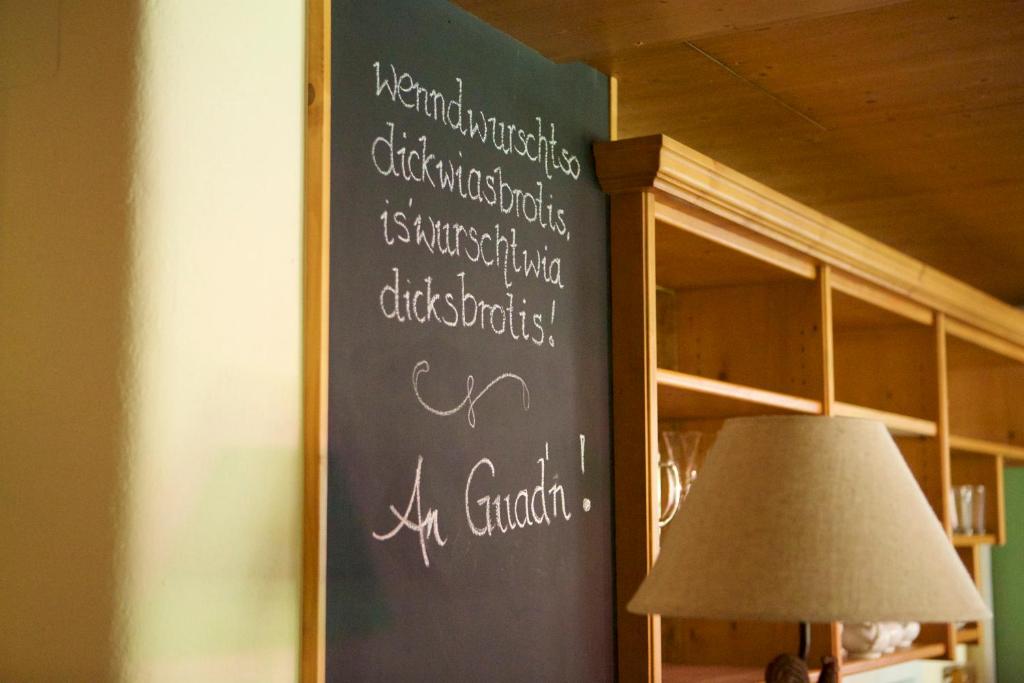 wenndwurschtso
dickwiasbrotis,
is'wurschtwia
dicksbrotis!
An Guad'n!